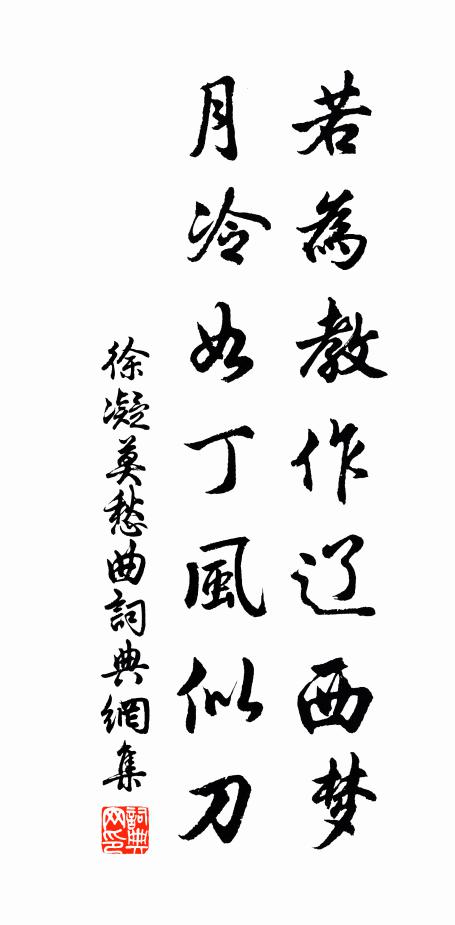 若為教作辽西梦
月冷如丁風似刀
徐凝莫愁曲詞典網集
詞典网印